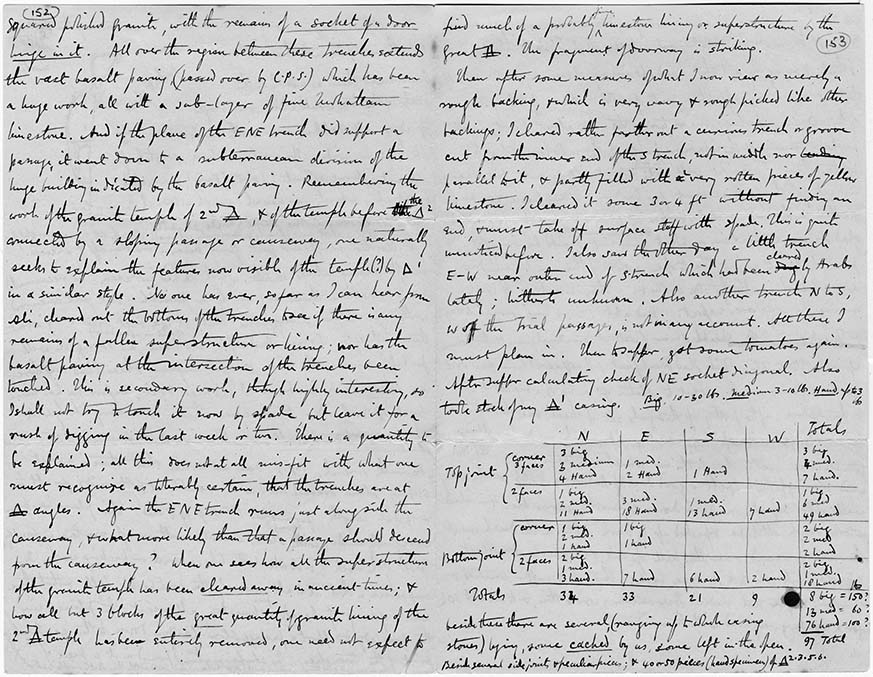 152
squared polished granite, with the remains of a socket of a door
hinge in it. All over the region between these trenches extends
the vast basalt paving (passed over by C.P.S.) which has been
a huge work, all with a sub-layer of fine Mokattam
limestone. And if the plane of the ENE trench did support a
passage, it went down to a subterranean division of the
huge building indicated by the basalt paving. Remembering the
work of the granite temple of 2nd Δ, & of the temple before the Δ 2
connected by a sloping passage or causeway, one naturally
seeks to explain the features now visible of the temple(?) by Δ1
in a similar style. No one has ever, so far as I can hear from
Ali, cleared out the bottoms of the trenches to see if there is any
remains of a fallen superstructure or lining; nor has the
basalt paving at the intersection of the trenches been
touched. This is secondary work, though highly interesting, so
I shall not try to touch it now by spade but leave it for a
rush of digging in the last week or two. There is a quantity to
be explained; all this does not at all mis-fit with what one
must recognise as literally certain, that the trenches are at
Δ angles. Again the ENE trench runs just alongside the
causeway & what more likely than that a passage should descend
from the causeway? When one sees how all the superstructure
of the granite temple has been cleared away in ancient times; &
how all but 3 blocks of the great quantity of granite lining of the
2nd Δ temple has been entirely removed, one need not expect to
153
find much of a probably fine limestone lining or superstructure by the
great Δ. The fragment of doorway is striking.
Then after some measures of what I now view as merely a
rough backing, & which is very wavy & rough picked like other
backings; I cleared rather further out a curious trench or groove
cut from the inner end of the S trench, not in width nor
parallel to it, & partly filled with very rotten pieces of yellow
limestone. I cleared it some 3 or 4 ft without finding an
end, & must take off surface stuff with spade. This is quite
unnoticed before. I also saw the other day a little trench
E-W near outer end of S trench which had been cleared by Arabs
lately; hitherto unknown. Also another trench N to S,
W of the Trial passage, is not in any account. All these I
must plan in. Then to supper, got some tomatoes again.
After supper calculating check of NE socket diagonal. Also
took stock of my Δ1 casing. Big 10-30 lbs. medium 3-10 lbs. Hand
N E S W Totals
Top joint { corner 3 faces 3 big 3 big
2 medium 1 med. 4 med.
4 Hand 2 Hand 1 Hand 7 hand.
2 faces 1 big 1 big
2 med. 3 med. 1 med. 6 med
11 Hand 18 Hand 13 hand 7 hand 49 hand
Bottom joint { corner 1 big 1 big 2 big
2 med. 2 med
1 hand 1 hand 2 hand
2 faces 2 big 2 big
1 med. 1 med.
3 hand 7 hand 6 hand 2 hand 18 hand
Totals 34 33 21 9 8 big = 150?
13 med = 60?
76 hand = 100?
97 Total
beside these there are several, (ranging up to whole casing
stones) lying, some cached by us, some left in the open.
Beside several side joint, & peculiar pieces; & 40 or 50 pieces (hand specimen) of Δ 2.3.5.6.